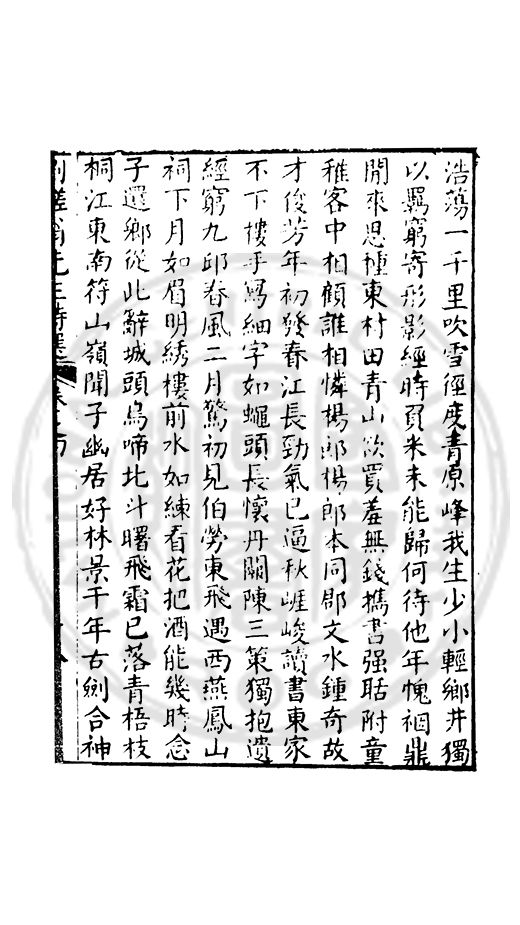 浩蕩一千里吹雪徑度青原峰我生少小輕鄉井獨
以羈窮寄形影經時負米未能歸何待他年愧裀鼎
閒來思種東村田青山欲買羞無錢擕書强聒附童
稚客中相顧誰相憐楊郎楊郎本同郡文水鍾奇故
才俊芳年初發春江長勁氣已逼秋崕峻讀書東家
不下樓手寫細字如蠅頭長懷丹闕陳三策獨抱遺
經窮九邱春風二月驚初見伯勞東飛遇西燕鳳山
祠下月如眉明綉樓前水如練看花把酒能幾時念
子還鄉從此辭城頭烏啼北斗曙飛霜已落青梧枝
桐江東南符山嶺聞子幽居好林景千年古劍合神